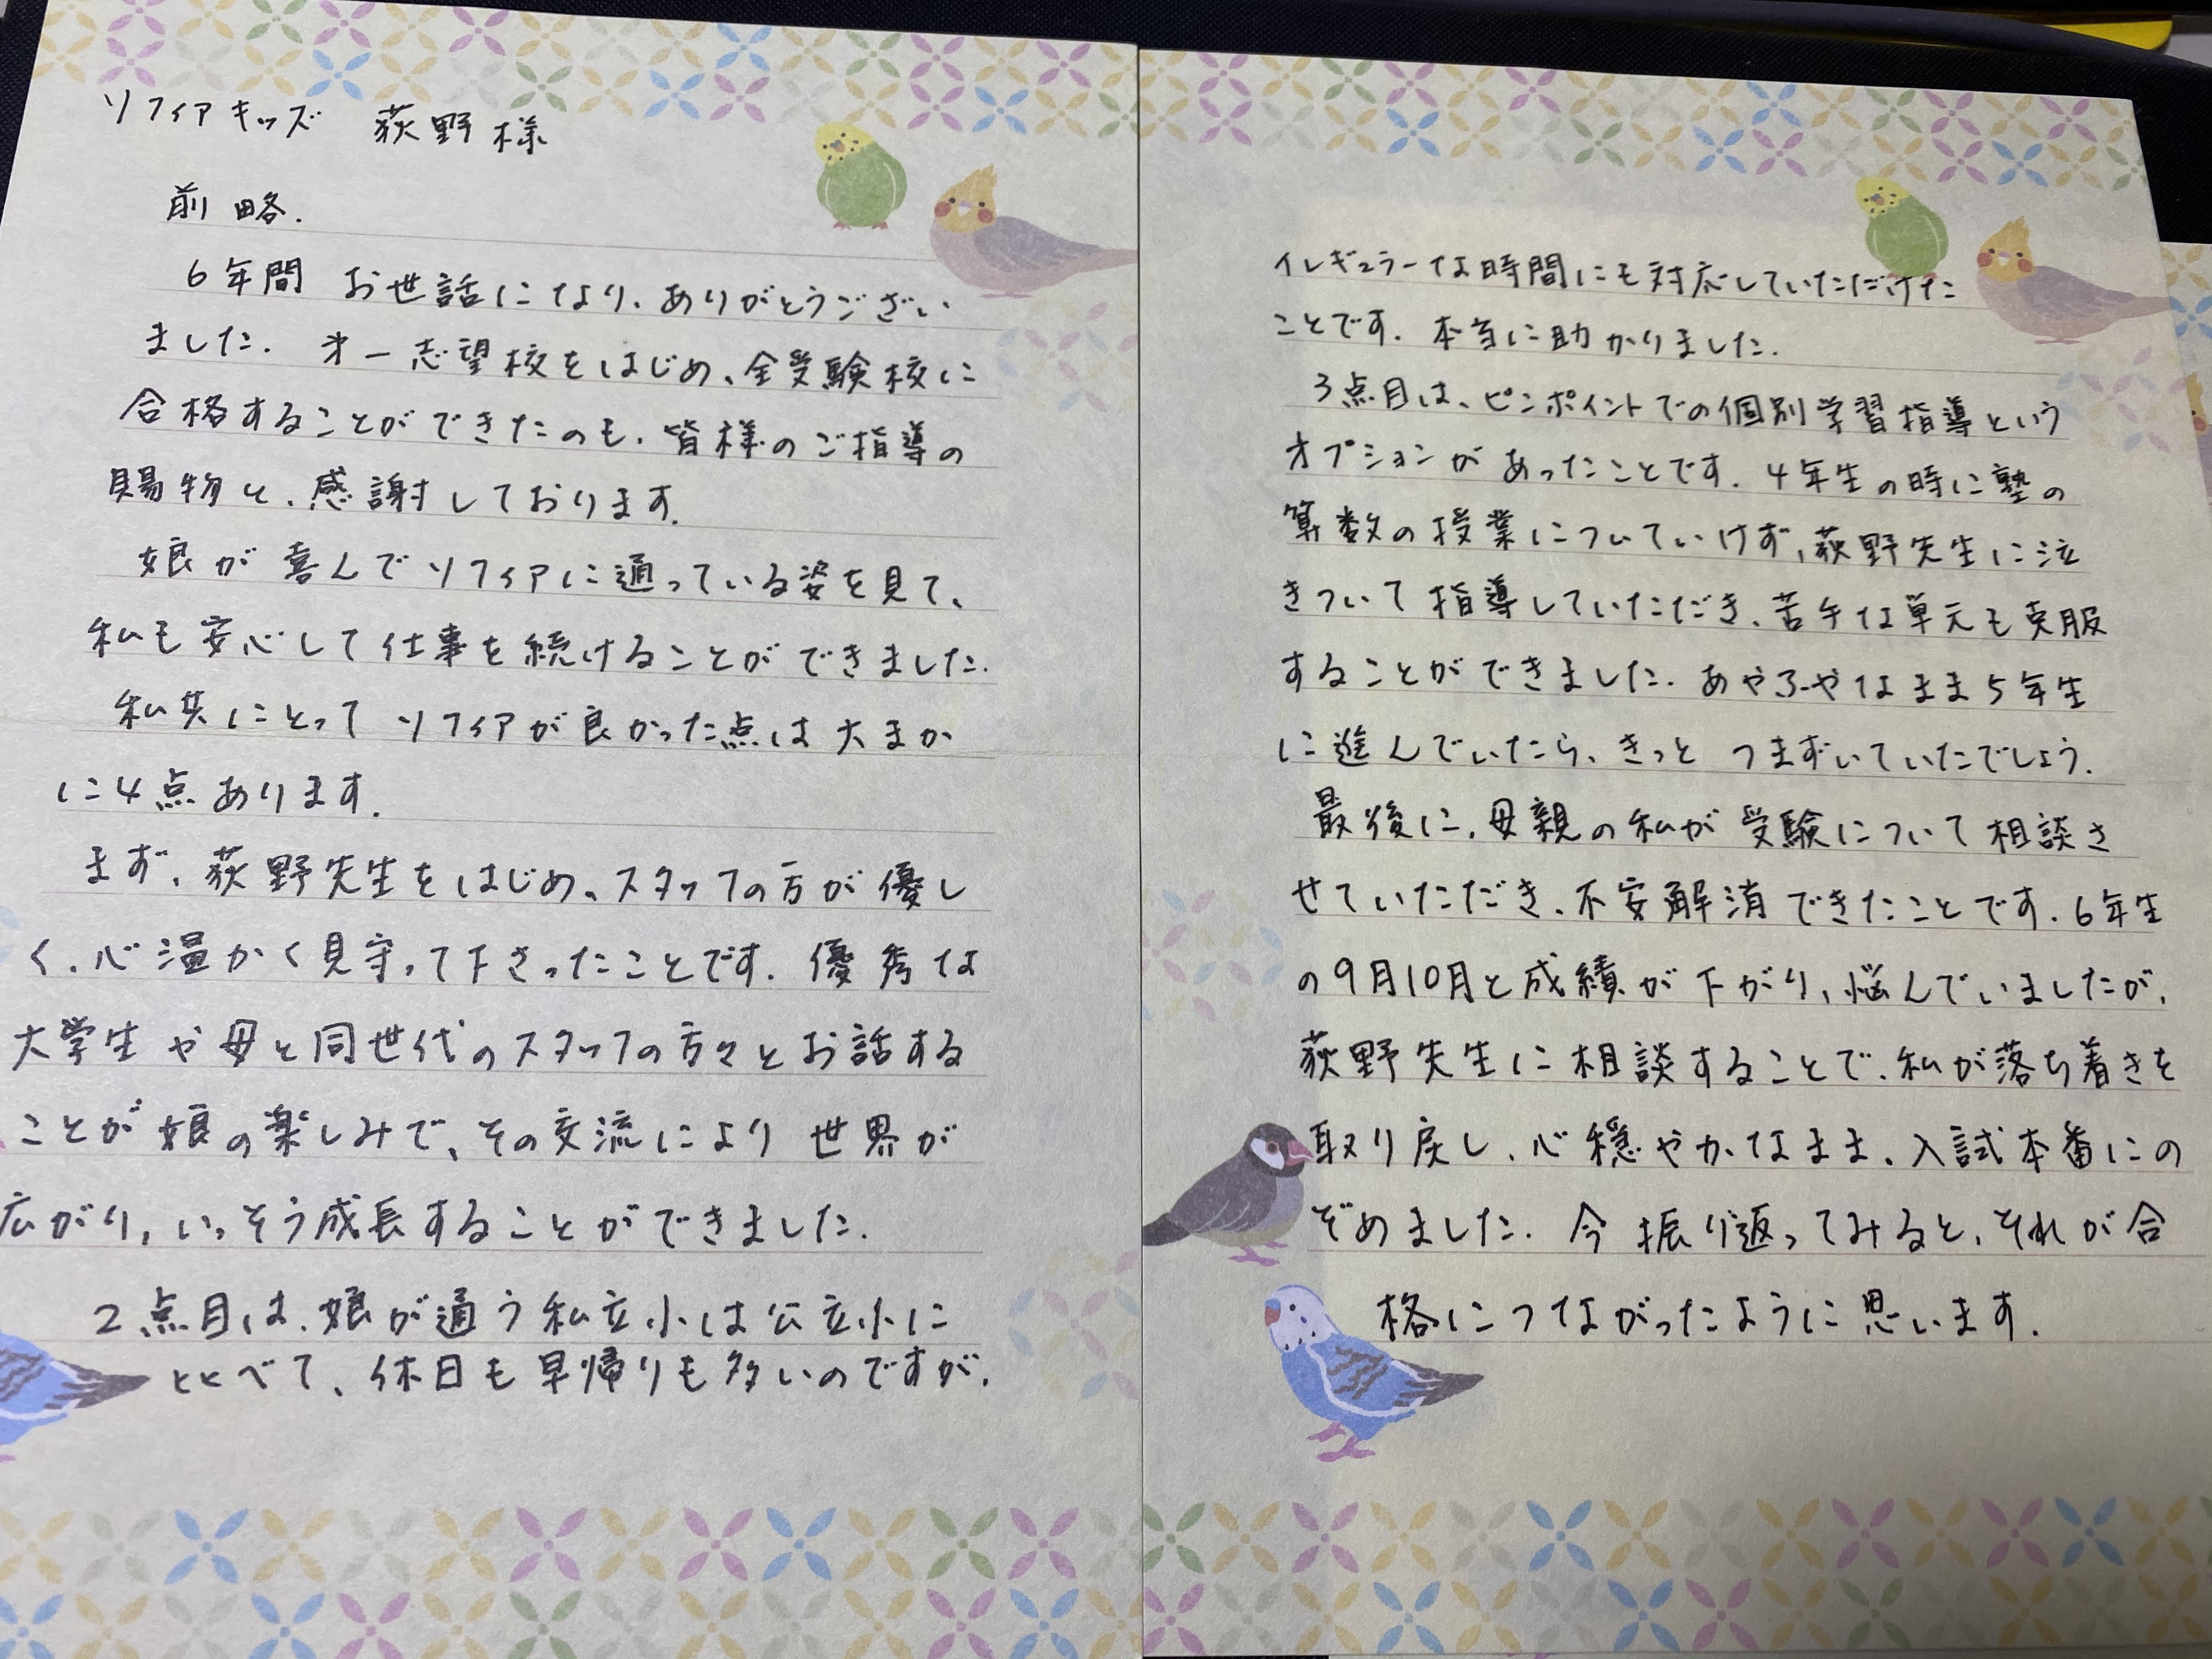 ソフィアキッズ 荻野様
前略.
6年間 お世話になり、ありがとうござい
ました. 才一志望校をはじめ、全受験校に
合格することができたのも、皆様のご指導の
賜物と、感謝しております.
娘が喜んでソフィアに通っている姿を見て、
私も安心して仕事を続けることができました.
私共にとって ソフィアが良かった点は大まか
に4点あります.
まず、荻野先生をはじめ、スタッフの方が優し
く、心温かく見守って下さったことです. 優秀な
大学生や母と同世代のスタッフの方々とお話する
ことが娘の楽しみで、その交流により 世界が
広がり, いっそう成長することができました.
2点目は、娘が通う私立小は公立小に
比べて、休日も早帰りも多いのですが、
イレギュラーな時間にも対応していただけた
ことです. 本当に助かりました.
3点目は、ピンポイントでの個別学習指導という
オプションがあったことです. 4年生の時に塾の
算数の授業についていけず、荻野先生に泣
きついて指導していただき、苦手な単元も克服
することができました. あやふやなまま5年生
に進んでいたら、きっと つまずいていたでしょう.
最後に、母親の私が受験について相談さ
せていただき、不安解消できたことです. 6年生
の9月10月と成績が下がり、悩んでいましたが、
荻野先生に相談することで、私が落ち着きを
取り戻し、心穏やかなまま、入試本番にの
ぞめました. 今振り返ってみると、それが合
格につながったように思います.